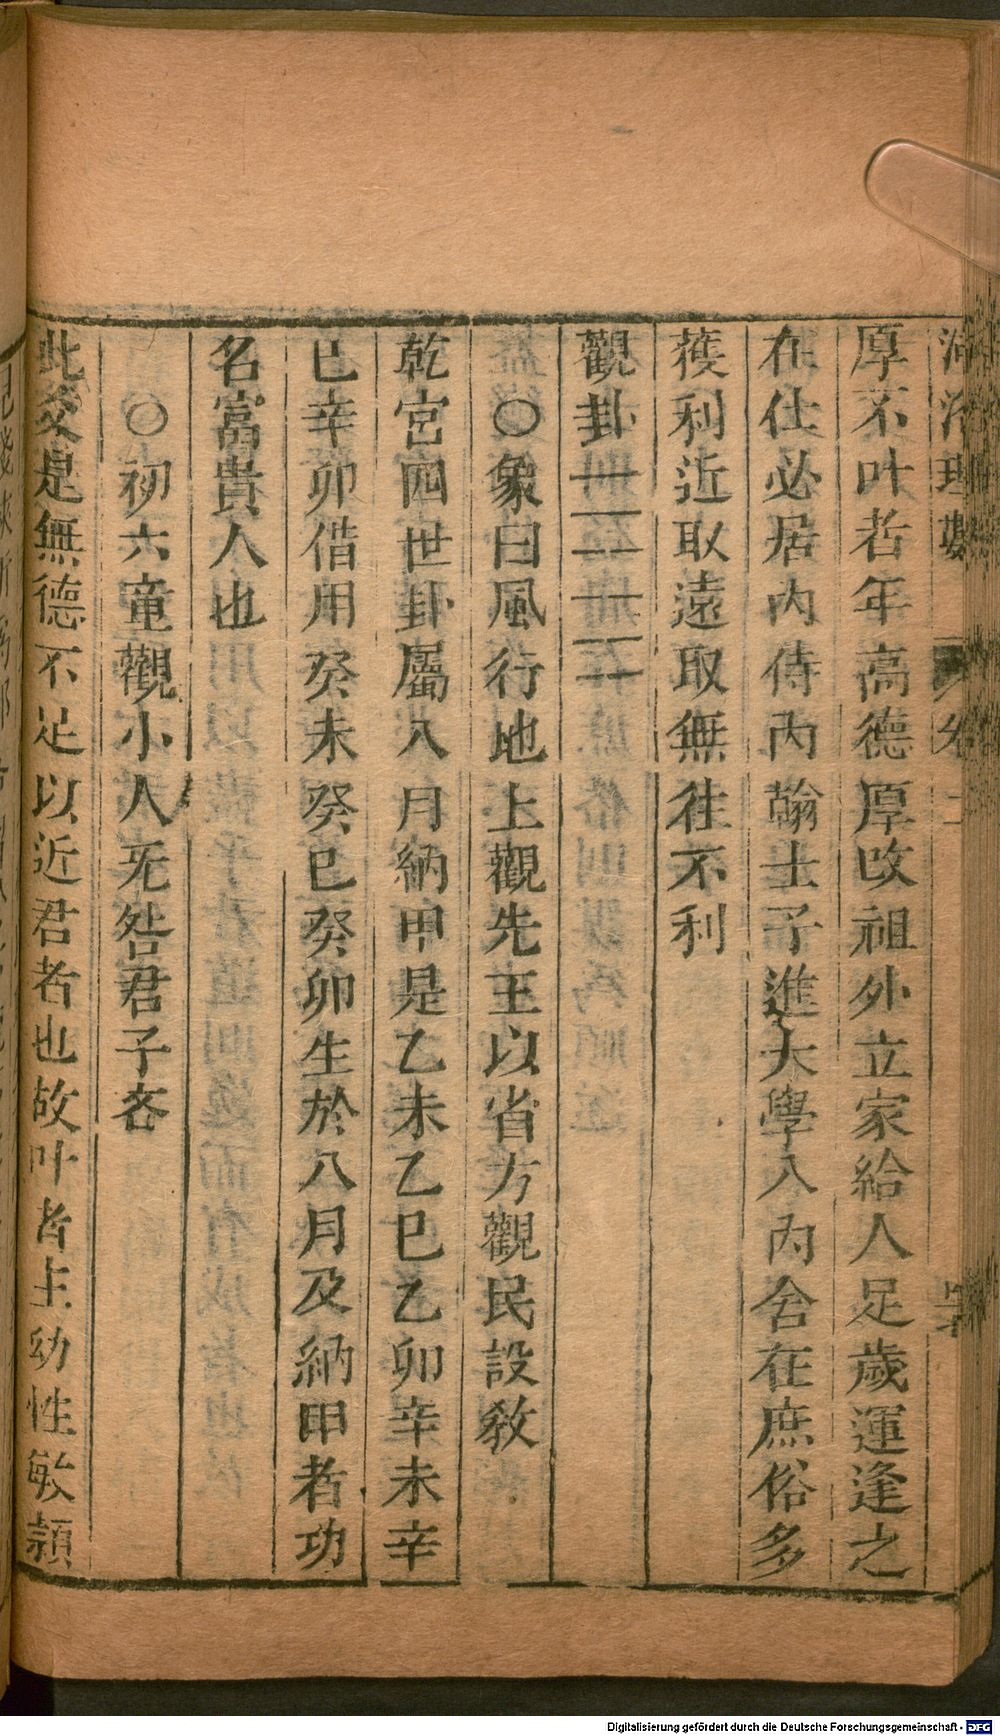 河洛理數 卷二
厚不叶者年高德厚改祖外立家給人足歲運逢之
在仕必居內侍內翰士子進大學入內舍在庶俗多
獲利近取遠取無往不利
觀卦
○象曰風行地上觀先王以省方觀民設敎
乾宮四世卦屬八月納甲是乙未乙巳乙卯辛未辛
巳辛卯借用癸未癸巳癸卯生於八月及納甲者功
名富貴人也
○初六童觀小人无咎君子吝
此爻是無德不足以近君者也故叶者主幼性敏頴
Digitalisierung gefördert durch die Deutsche Forschungsgemeinschaft - DFG